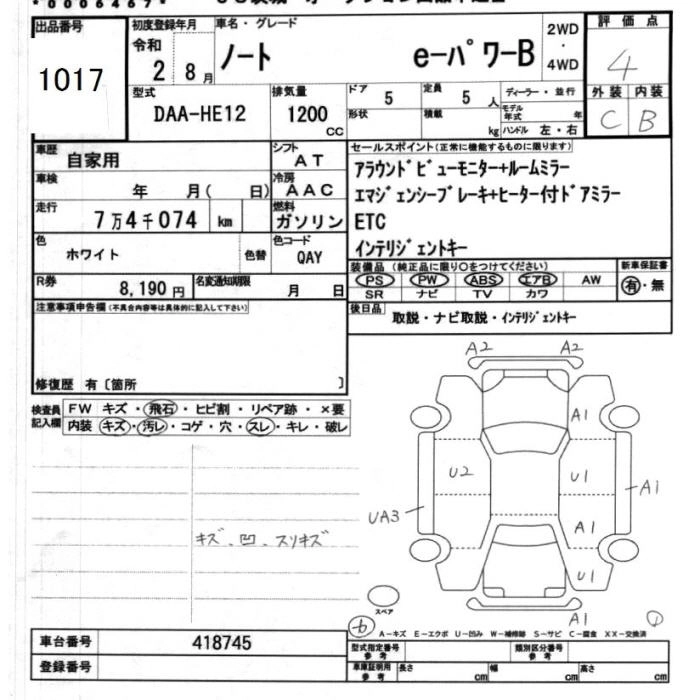 *0006467*
出品番号
1017
初度登録年月
令和
2 8月
車名・グレード
ノート e-パワーB
2WD
・
4WD
評価点
4
外装 内装
C B
型式
DAA-HE12
排気量
1200
CC
ドア
5
形状
定員
5 人
積載
kg
ディーラー・並行
モデル年式 年
ハンドル 左・右
車歴
自家用
シフト
AT
車検
年 月( 日)
冷房
AAC
走行
7万4千074 km
燃料
ガソリン
色
ホワイト
色替
色コード
QAY
R券
8,190円
名変通知期限
月 日
セールスポイント(正常に機能するものに限ります)
アラウンドビューモニター+ルームミラー
エマジェンシーブレーキ+ヒーター付ドアミラー
ETC
インテリジェントキー
装備品(純正品に限り○をつけてください)
PS PW ABS エアB AW
SR ナビ TV カワ
新車保証書
有・無
後日品
取説・ナビ取説・インテリジェントキー
注意事項申告欄(不具合内容等は具体的に記入して下さい)
修復歴 有〔箇所 〕
検査員記入欄
FW キズ・飛石・ヒビ割・リペア跡・×要
内装 キズ・汚レ・コゲ・穴・スレ・キレ・破レ
キズ、凹、スリキズ
A2 A2
A1
U2 U1
A1
UA3
A1
U1
A1
スペア
b
1
A-キズ E-エクボ U-凹み W-補修跡 S-サビ C-腐食 XX-交換済
車台番号
418745
登録番号
型式指定番号
参考
類別区分番号
参考
車庫証明用
参考
長さ cm
幅 cm
高さ cm